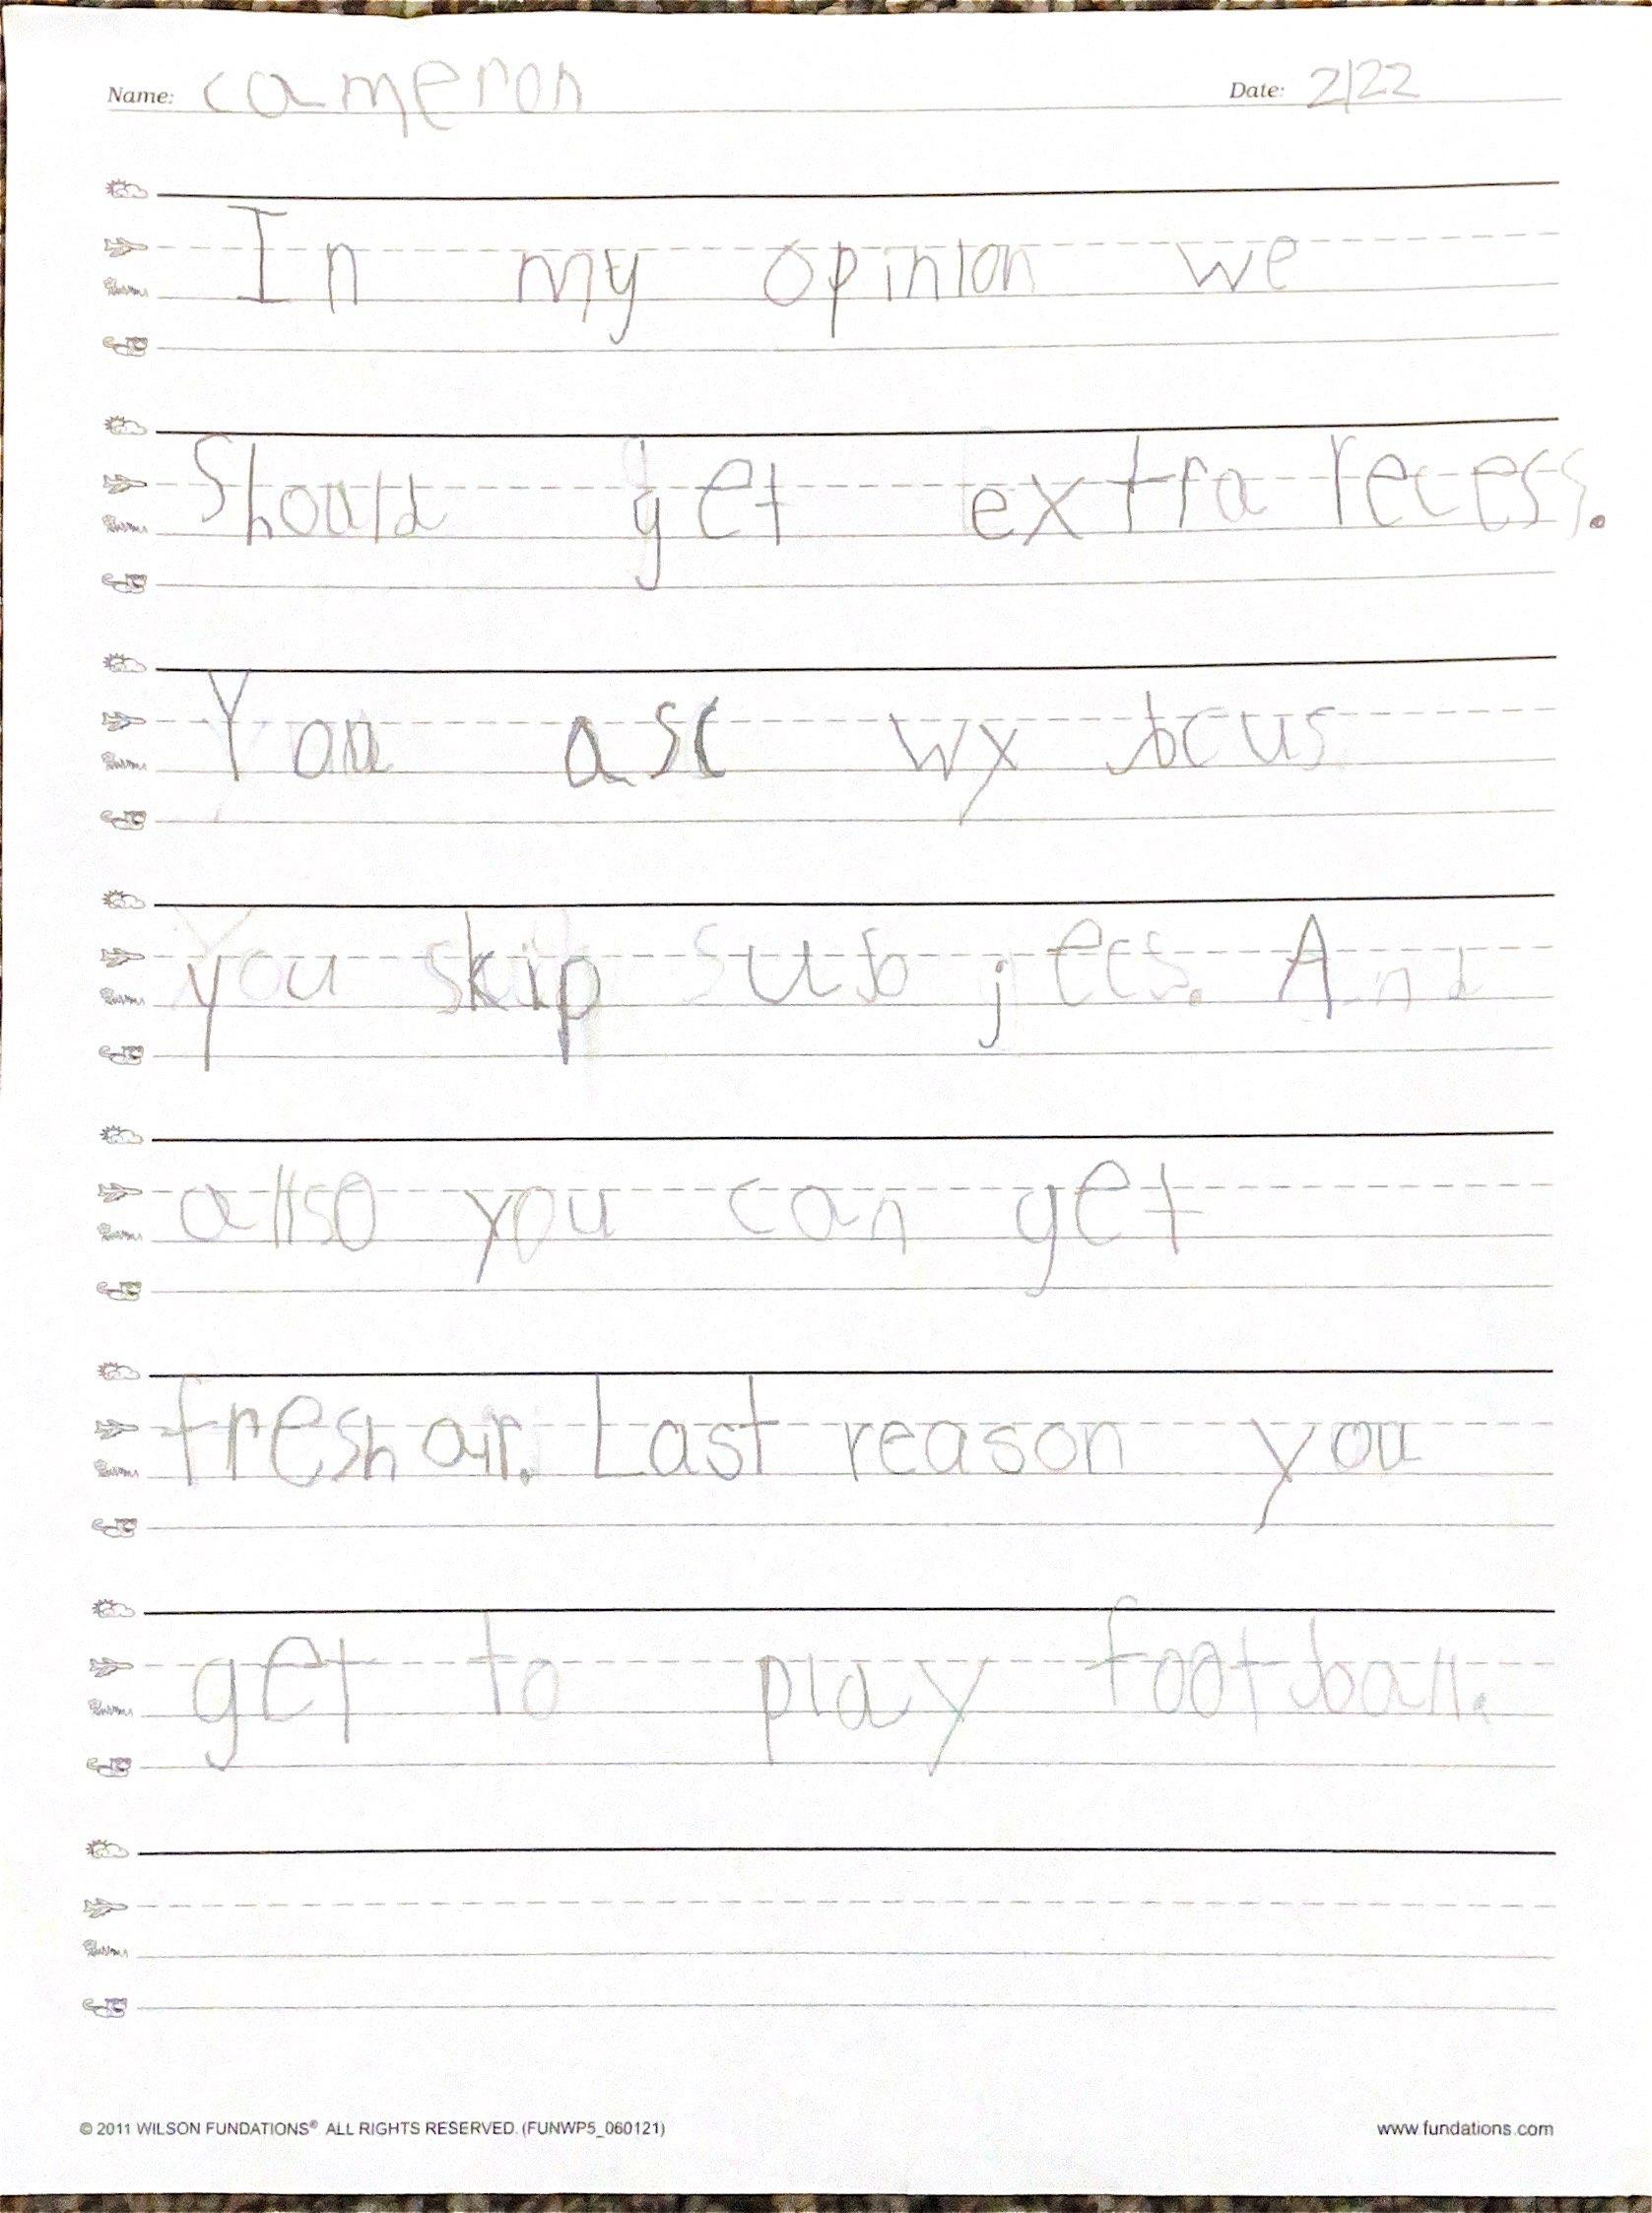 Name: cameron Date: 2/22
In my opinion we
Should get extra recess.
You asc wy bcus
you skip subjecs. And
allso you can get
fresh air. Last reason you
get to play football.
© 2011 WILSON FUNDATIONS® ALL RIGHTS RESERVED. (FUNWP5_060121) www.fundations.com